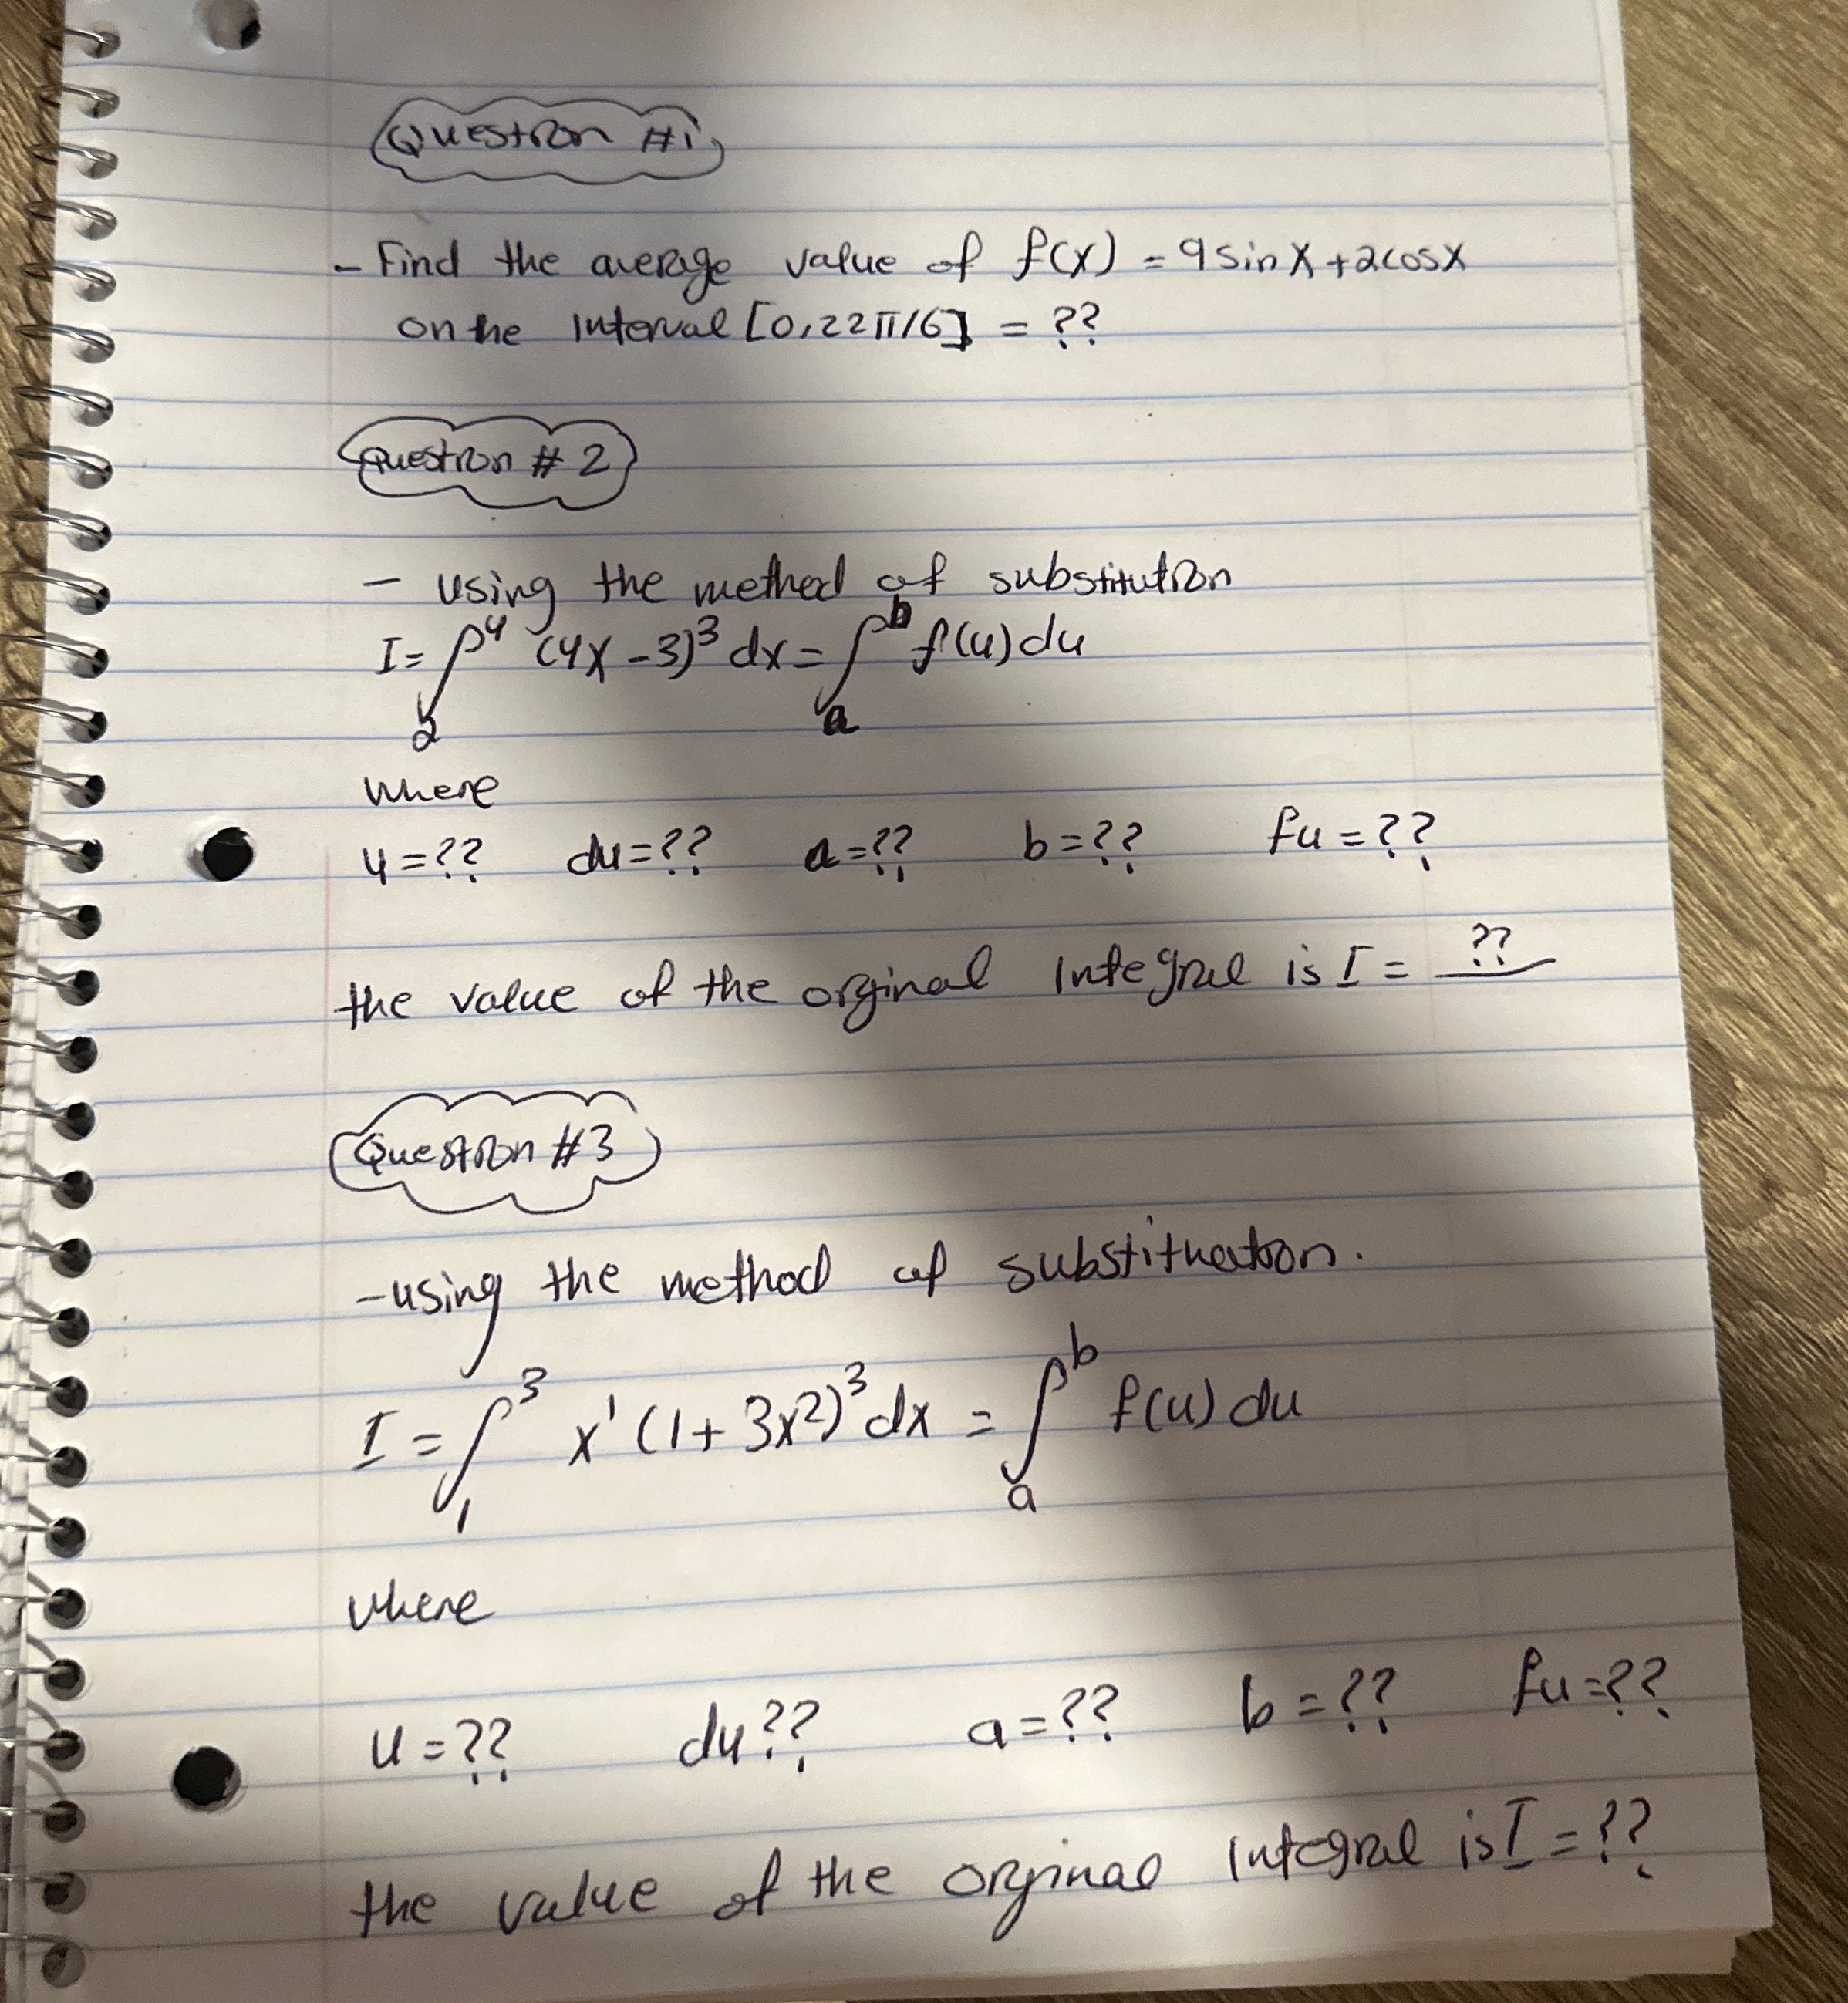 Question #1
- Find the average value of f(x) = 9sinx+2cosx
on the interval [0,22π/6] = ??
Question #2
- using the method of substitution
I = ∫₂⁴ (4x-3)³ dx = ∫ₐᵇ f(u) du
where
u=?? du=?? a=?? b=?? fu=??
the value of the orginal Integral is I = ??
Question #3
-using the method of substituation.
I = ∫₁³ x¹(1+3x2)³dx = ∫ₐᵇ f(u) du
where
u=?? du?? a=?? b=?? fu=??
the value of the orginal Integral is I=??